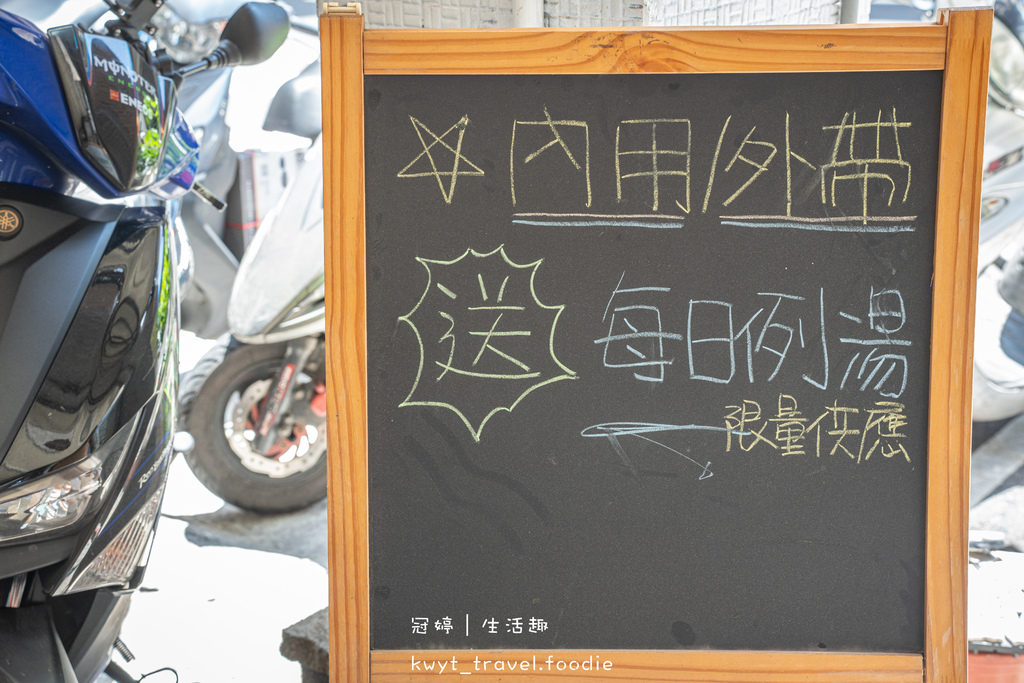 MONSTER
ENERGY
ENEOS
☆內用/外帶
送 每日例湯
限量供應
冠婷｜生活趣
kwyt_travel.foodie